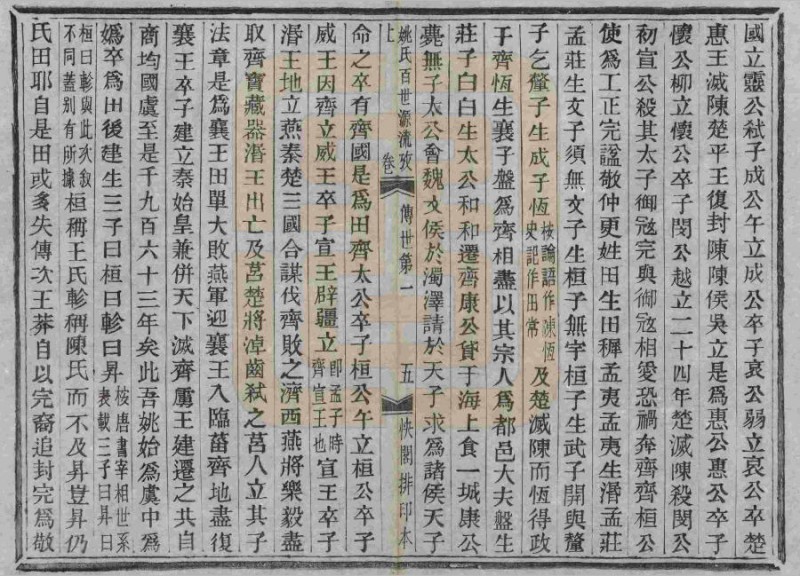 國立靈公弒子成公午立成公卒子哀公弱立哀公卒楚
惠王滅陳楚平王復封陳陳侯吳立是爲惠公惠公卒子
懷公柳立懷公卒子閔公越立二十四年楚滅陳殺閔公
初宣公殺其太子御寇完與御寇相愛恐禍奔齊齊桓公
使爲工正完諡敬仲更姓田生田穉孟夷孟夷生湣孟莊
孟莊生文子須無文子生桓子無宇桓子生武子開與釐
子乞釐子生成子恆按論語作陳恆史記作田常及楚滅陳而恆得政
于齊恆生襄子盤爲齊相盡以其宗人爲都邑大夫盤生
莊子白白生太公和和遷齊康公貸于海上食一城康公
薨無子太公會魏文侯於濁澤請於天子求爲諸侯天子
姚氏百世源流攷 卷上 傳世第一 五 快閣排印本
命之卒有齊國是爲田齊太公卒子桓公午立桓公卒子
威王因齊立威王卒子宣王辟疆立即孟子時齊宣王也宣王卒子
湣王地立燕秦楚三國合謀伐齊敗之濟西燕將樂毅盡
取齊寶藏器湣王出亡及莒楚將淖齒弒之莒人立其子
法章是爲襄王田單大敗燕軍迎襄王入臨菑齊地盡復
襄王卒子建立秦始皇兼併天下滅齊虜王建遷之共自
商均國虞至是千九百六十三年矣此吾姚始爲虞中爲
嬀卒爲田後建生三子曰桓曰軫曰昇按唐書宰相世系表載三子曰昇曰
桓曰軫與此次敘不同蓋別有所據桓稱王氏軫稱陳氏而不及昇豈昇仍
氏田耶自是田或多失傳次王莽自以完裔追封完爲敬